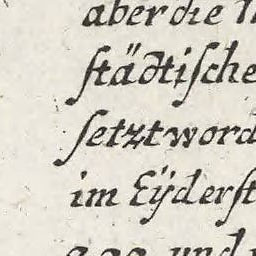 aber die
ſtädtiſche
ſetzt word
im Eÿderſt
und